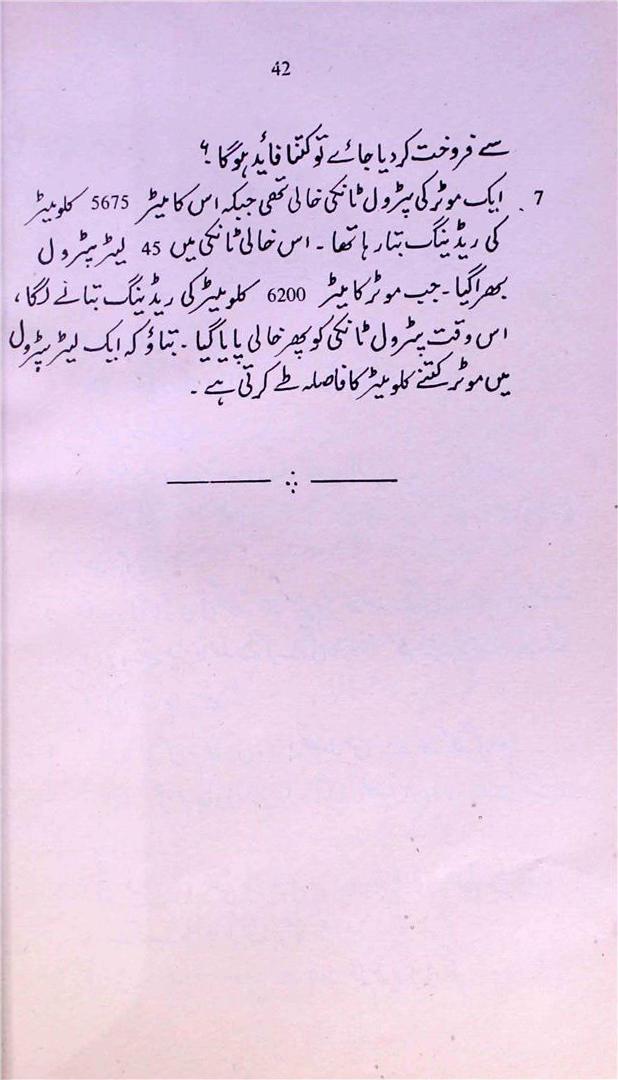 42
سے فروخت کر دیا جائے تو کتنا فائد ہوگا ؟
7. ایک موٹر کی پٹرول ٹانکی خالی تھی جبکہ اس کا میٹر 5675 کلو میٹر
کی ریڈینگ بتا رہا تھا ۔ اس خالی ٹانکی میں 45 لیٹر پٹرول
بھرا گیا ۔ جب موٹر کا میٹر 6200 کلو میٹر کی ریڈینگ بتانے لگا ،
اس وقت پٹرول ٹانکی کو پھر خالی پایا گیا ۔ بتاؤ کہ ایک لیٹر پٹرول
میں موٹر کتنے کلو میٹر کا فاصلہ طے کرتی ہے ۔